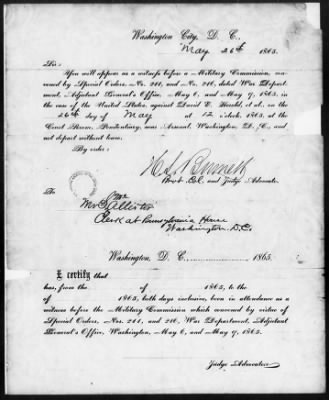 Washington City, D. C.,
May 26th 1865.
Sir:
You will appear as a witness before a Military Commission, con-
vened by Special Orders, No. 211, and No. 216, dated War Depart-
ment, Adjutant General's Office, May 6, and May 9, 1865, in
the case of the United States, against David E. Herold, et al., on the
26th day of May at 12 o'clock, 1865, at the
Court Room, Penitentiary, near Arsenal, Washington, D. C., and
not depart without leave.
By order:
H L Burnett
Bvt Col. and Judge Advocate.
To
Mr
McAllister
Clerk at Pennsylvania House
Washington D.C.
Washington, D. C., 1865.
I certify that
has, from the of 1865, to the
of 1865, both days inclusive, been in attendance as a
witness before the Military Commission which convened by virtue of
Special Orders, Nos. 211, and 216, War Department, Adjutant
General's Office, Washington, May 6, and May 9, 1865.
Judge Advocate.